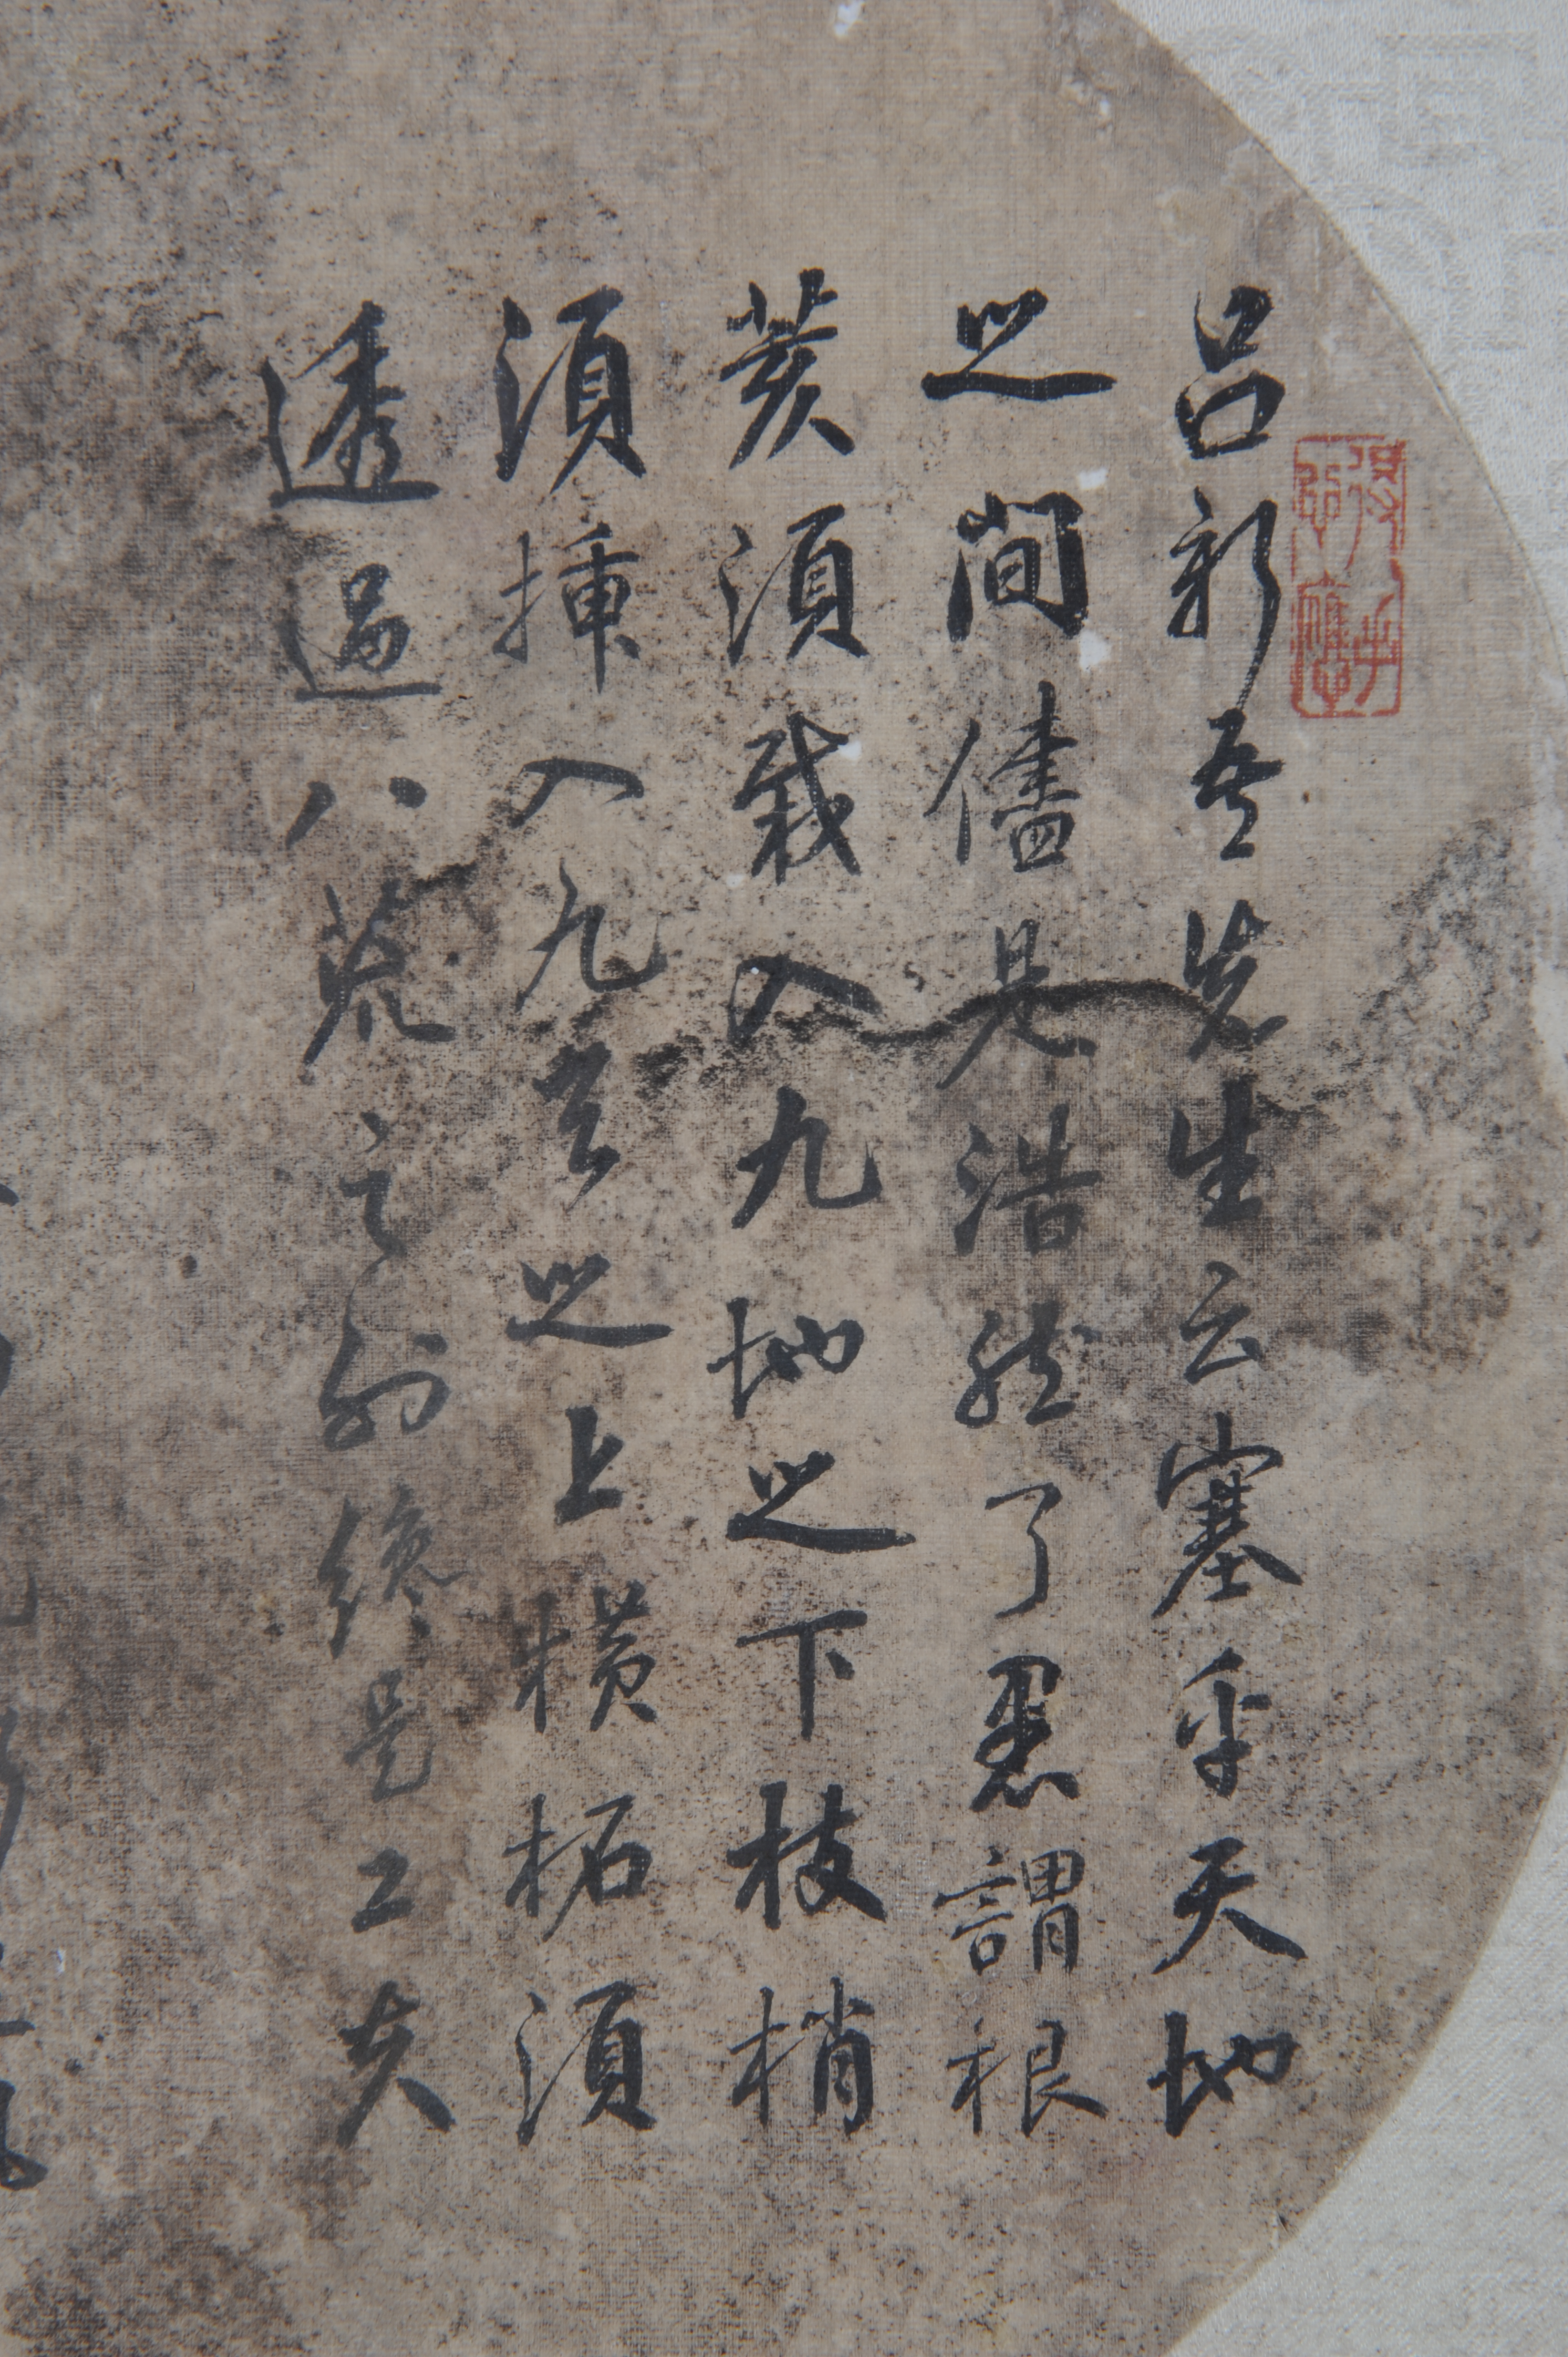 呂新吾先生云塞乎天地
之間儘是浩然了愚謂根
荄須栽入九地之下枝梢
須插入九霄之上橫拓須
透過八荒之外終是工夫